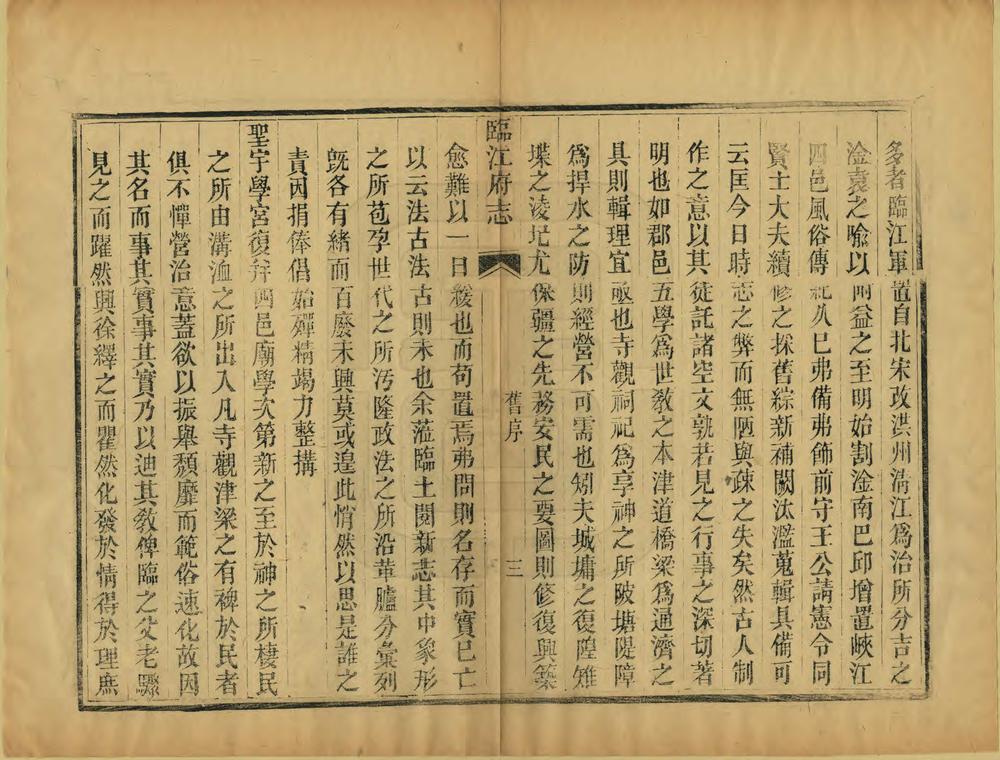 多者臨江軍置自北宋改洪州清江爲治所分吉之
淦袁之喻以兩益之至明始割淦南巴邱增置峽江
四邑風俗傳記久已弗備弗飾前守王公請憲令同
賢士大夫續修之採舊綜新補闕汰濫蒐輯具備可
云匡今日時志之弊而無陋與疎之失矣然古人制
作之意以其徒託諸空文孰若見之行事之深切著
明也如郡邑五學爲世敎之本津道橋梁爲通濟之
具則輯理宜亟也寺觀祠祀爲享神之所陂塘隄障
爲捍水之防則經營不可需也矧夫城墉之復隍雉
堞之淩圮尤保疆之先務安民之要圖則修復興築
臨江府志
舊序
三
愈難以一日緩也而苟置焉弗問則名存而實已亡
以云法古法古則未也余蒞臨土閱新志其中象形
之所苞孕世代之所汚隆政法之所沿革臚分彙列
旣各有緒而百廢未興莫或遑此悄然以思是誰之
責因捐俸倡始殫精竭力整搆
聖宇學宮復并四邑廟學次第新之至於神之所棲民
之所由溝洫之所出入凡寺觀津梁之有裨於民者
俱不憚營治意蓋欲以振舉頹靡而範俗速化故因
其名而事其實事其實乃以迪其敎俾臨之父老驟
見之而躍然興徐繹之而瞿然化發於情得於理庶